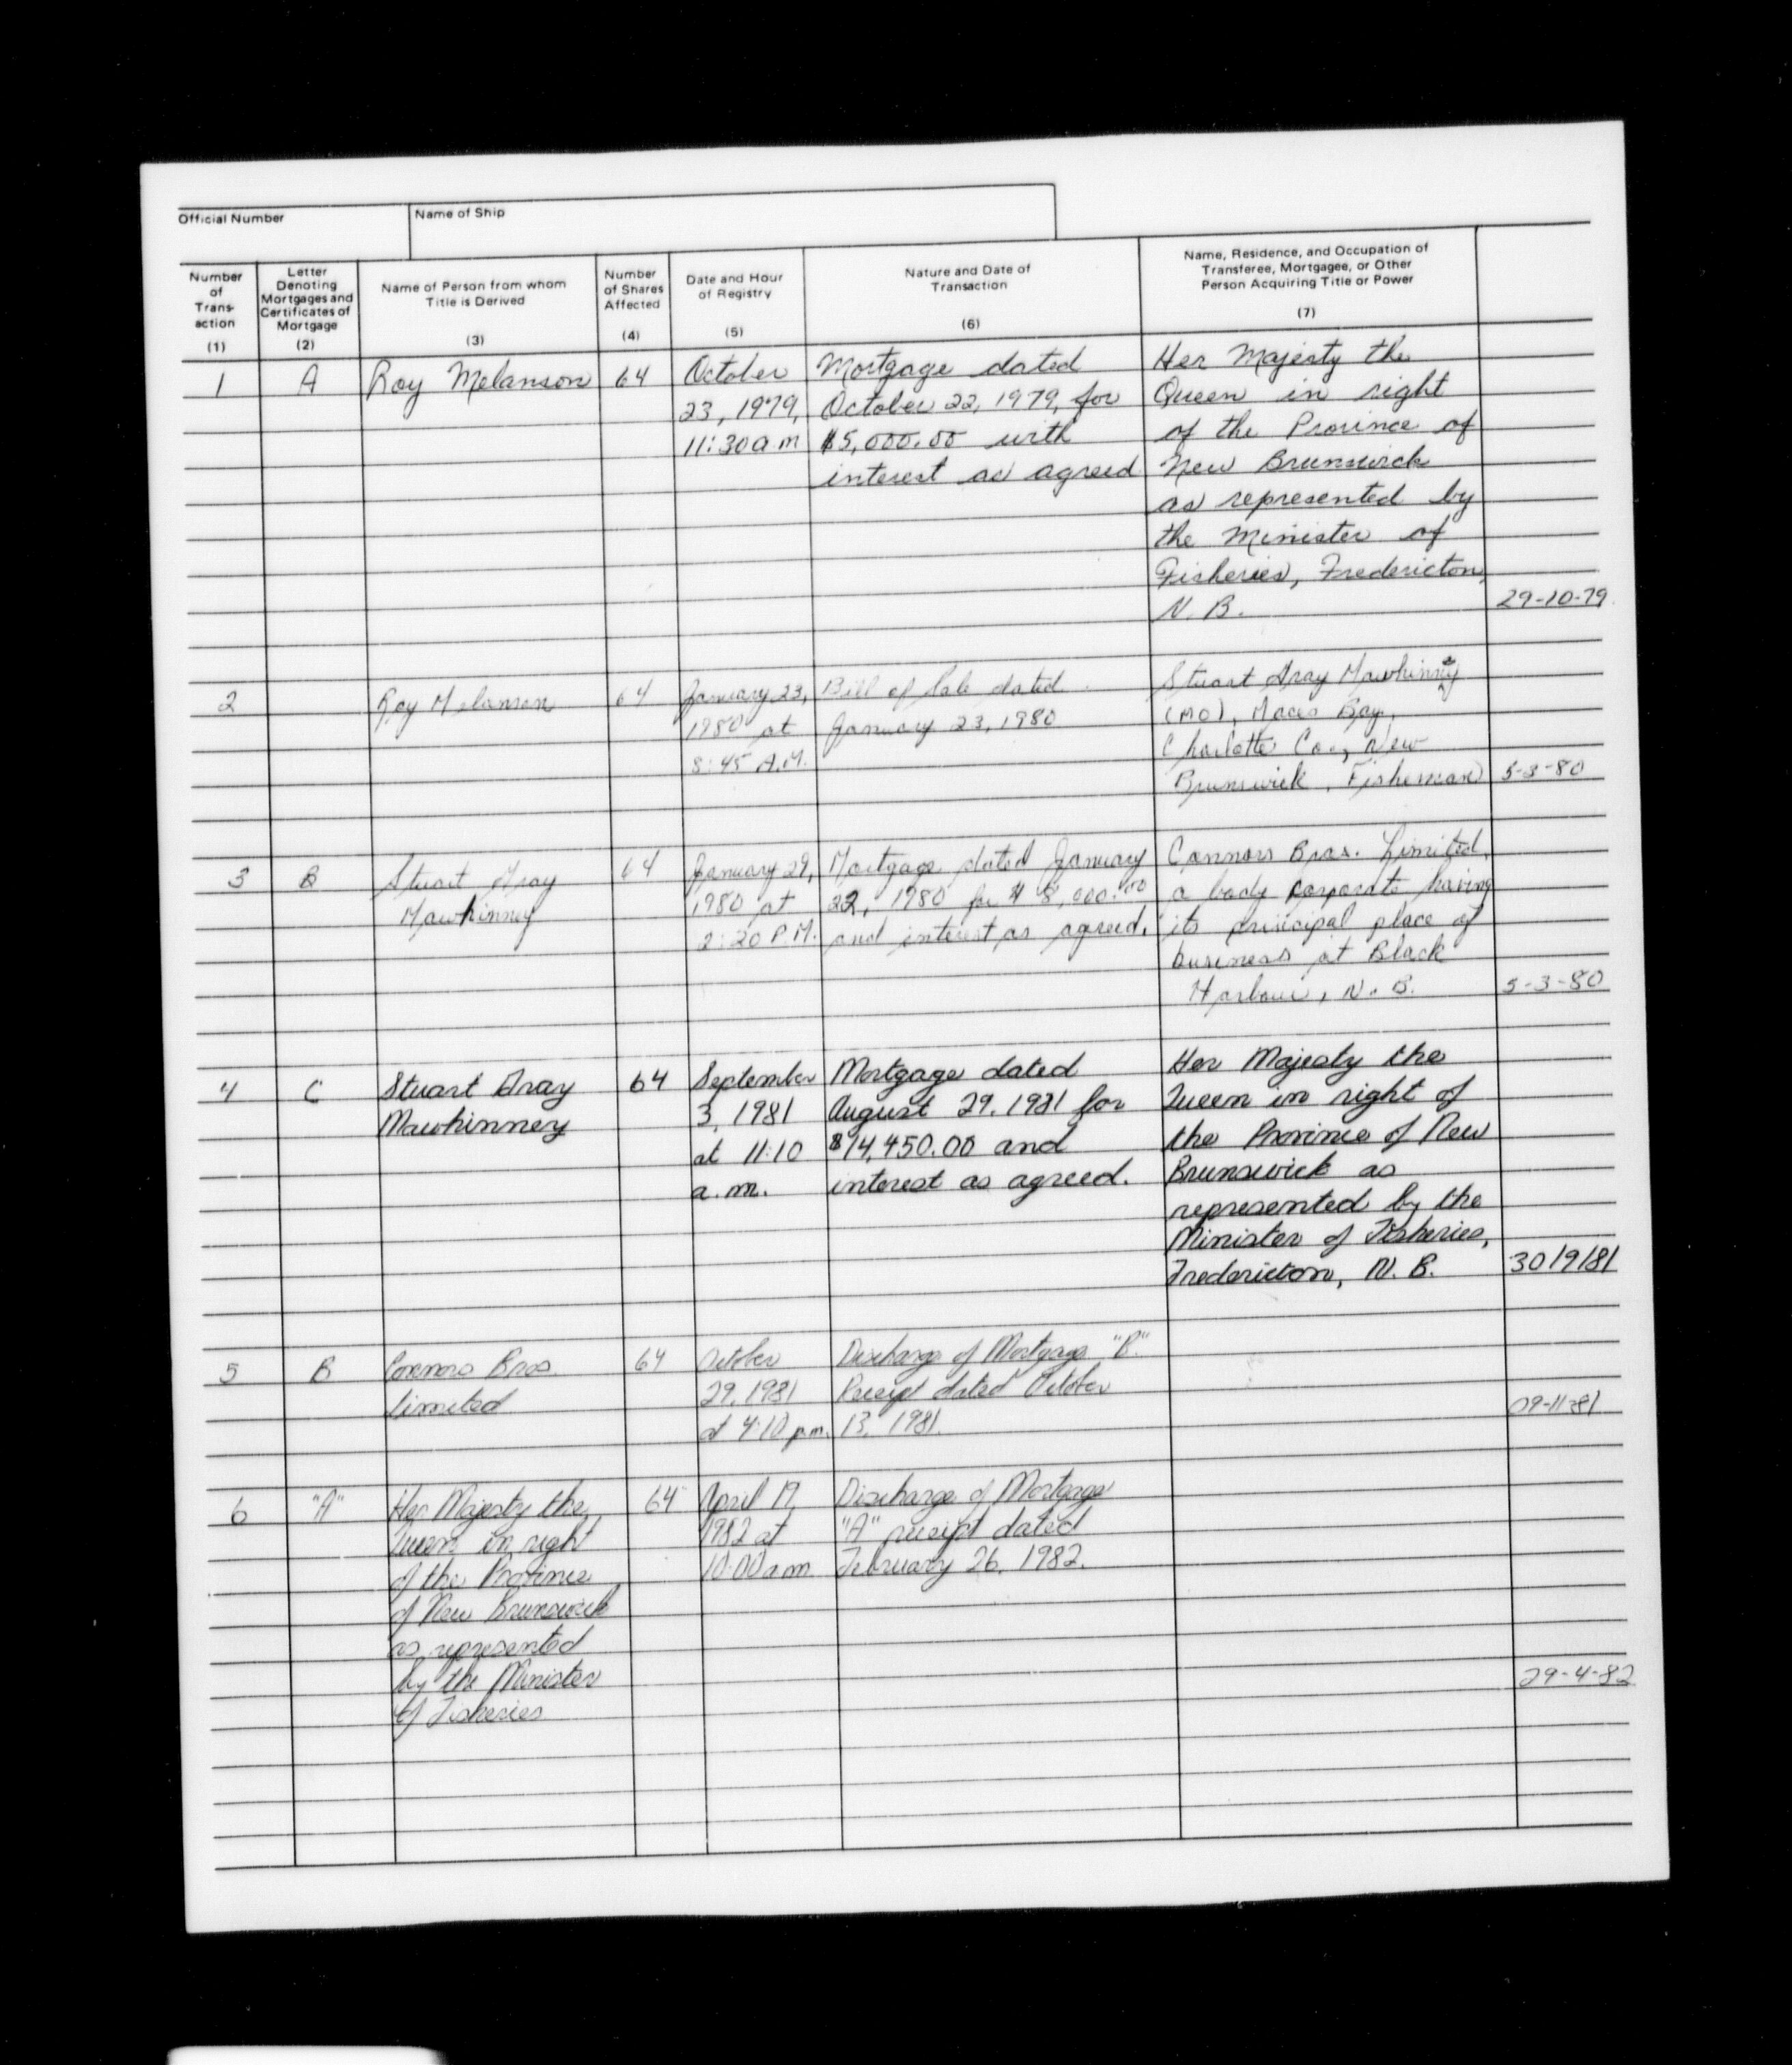 Official Number
Name of Ship
Number of Trans- action (1)
Letter Denoting Mortgages and Certificates of Mortgage (2)
Name of Person from whom Title is Derived (3)
Number of Shares Affected (4)
Date and Hour of Registry (5)
Nature and Date of Transaction (6)
Name, Residence, and Occupation of Transferee, Mortgagee, or Other Person Acquiring Title or Power (7)
1 A Roy Melanson 64 October Mortgage dated Her Majesty the
23, 1979, October 22, 1979, for Queen in right
11:30 a.m $5,000.00 with of the Province of
interest as agreed New Brunswick
as represented by
the Minister of
Fisheries, Fredericton,
N. B. 29-10-79
2 Roy Melanson 64 January 23, Bill of Sale dated Stuart Gray Mawhinney
1980 at January 23, 1980 (MO), Maces Bay,
8:45 A.M. Charlotte Co., New
Brunswick, Fisherman 5-3-80
3 B Stuart Gray 64 January 29, Mortgage dated January Connors Bros. Limited,
Mawhinney 1980 at 22, 1980 for $ 8,000.00 a body corporate having
2:20 P.M. and interest as agreed. its principal place of
business at Black
Harbour, N. B. 5-3-80
4 C Stuart Gray 64 September Mortgage dated Her Majesty the
Mawhinney 3, 1981 August 29, 1981 for Queen in right of
at 11:10 $14,450.00 and the Province of New
a.m. interest as agreed. Brunswick as
represented by the
Minister of Fisheries,
Fredericton, N. B. 30/9/81
5 B Connors Bros. 64 October Discharge of Mortgage "B"
Limited 29, 1981 Receipt dated October
at 4:10 p.m. 13, 1981. 09-11-81
6 "A" Her Majesty the 64 April 19, Discharge of Mortgage
Queen in right 1982 at "A" receipt dated
of the Province 10:00 a.m. February 26, 1982.
of New Brunswick
as represented
by the Minister 29-4-82
of Fisheries